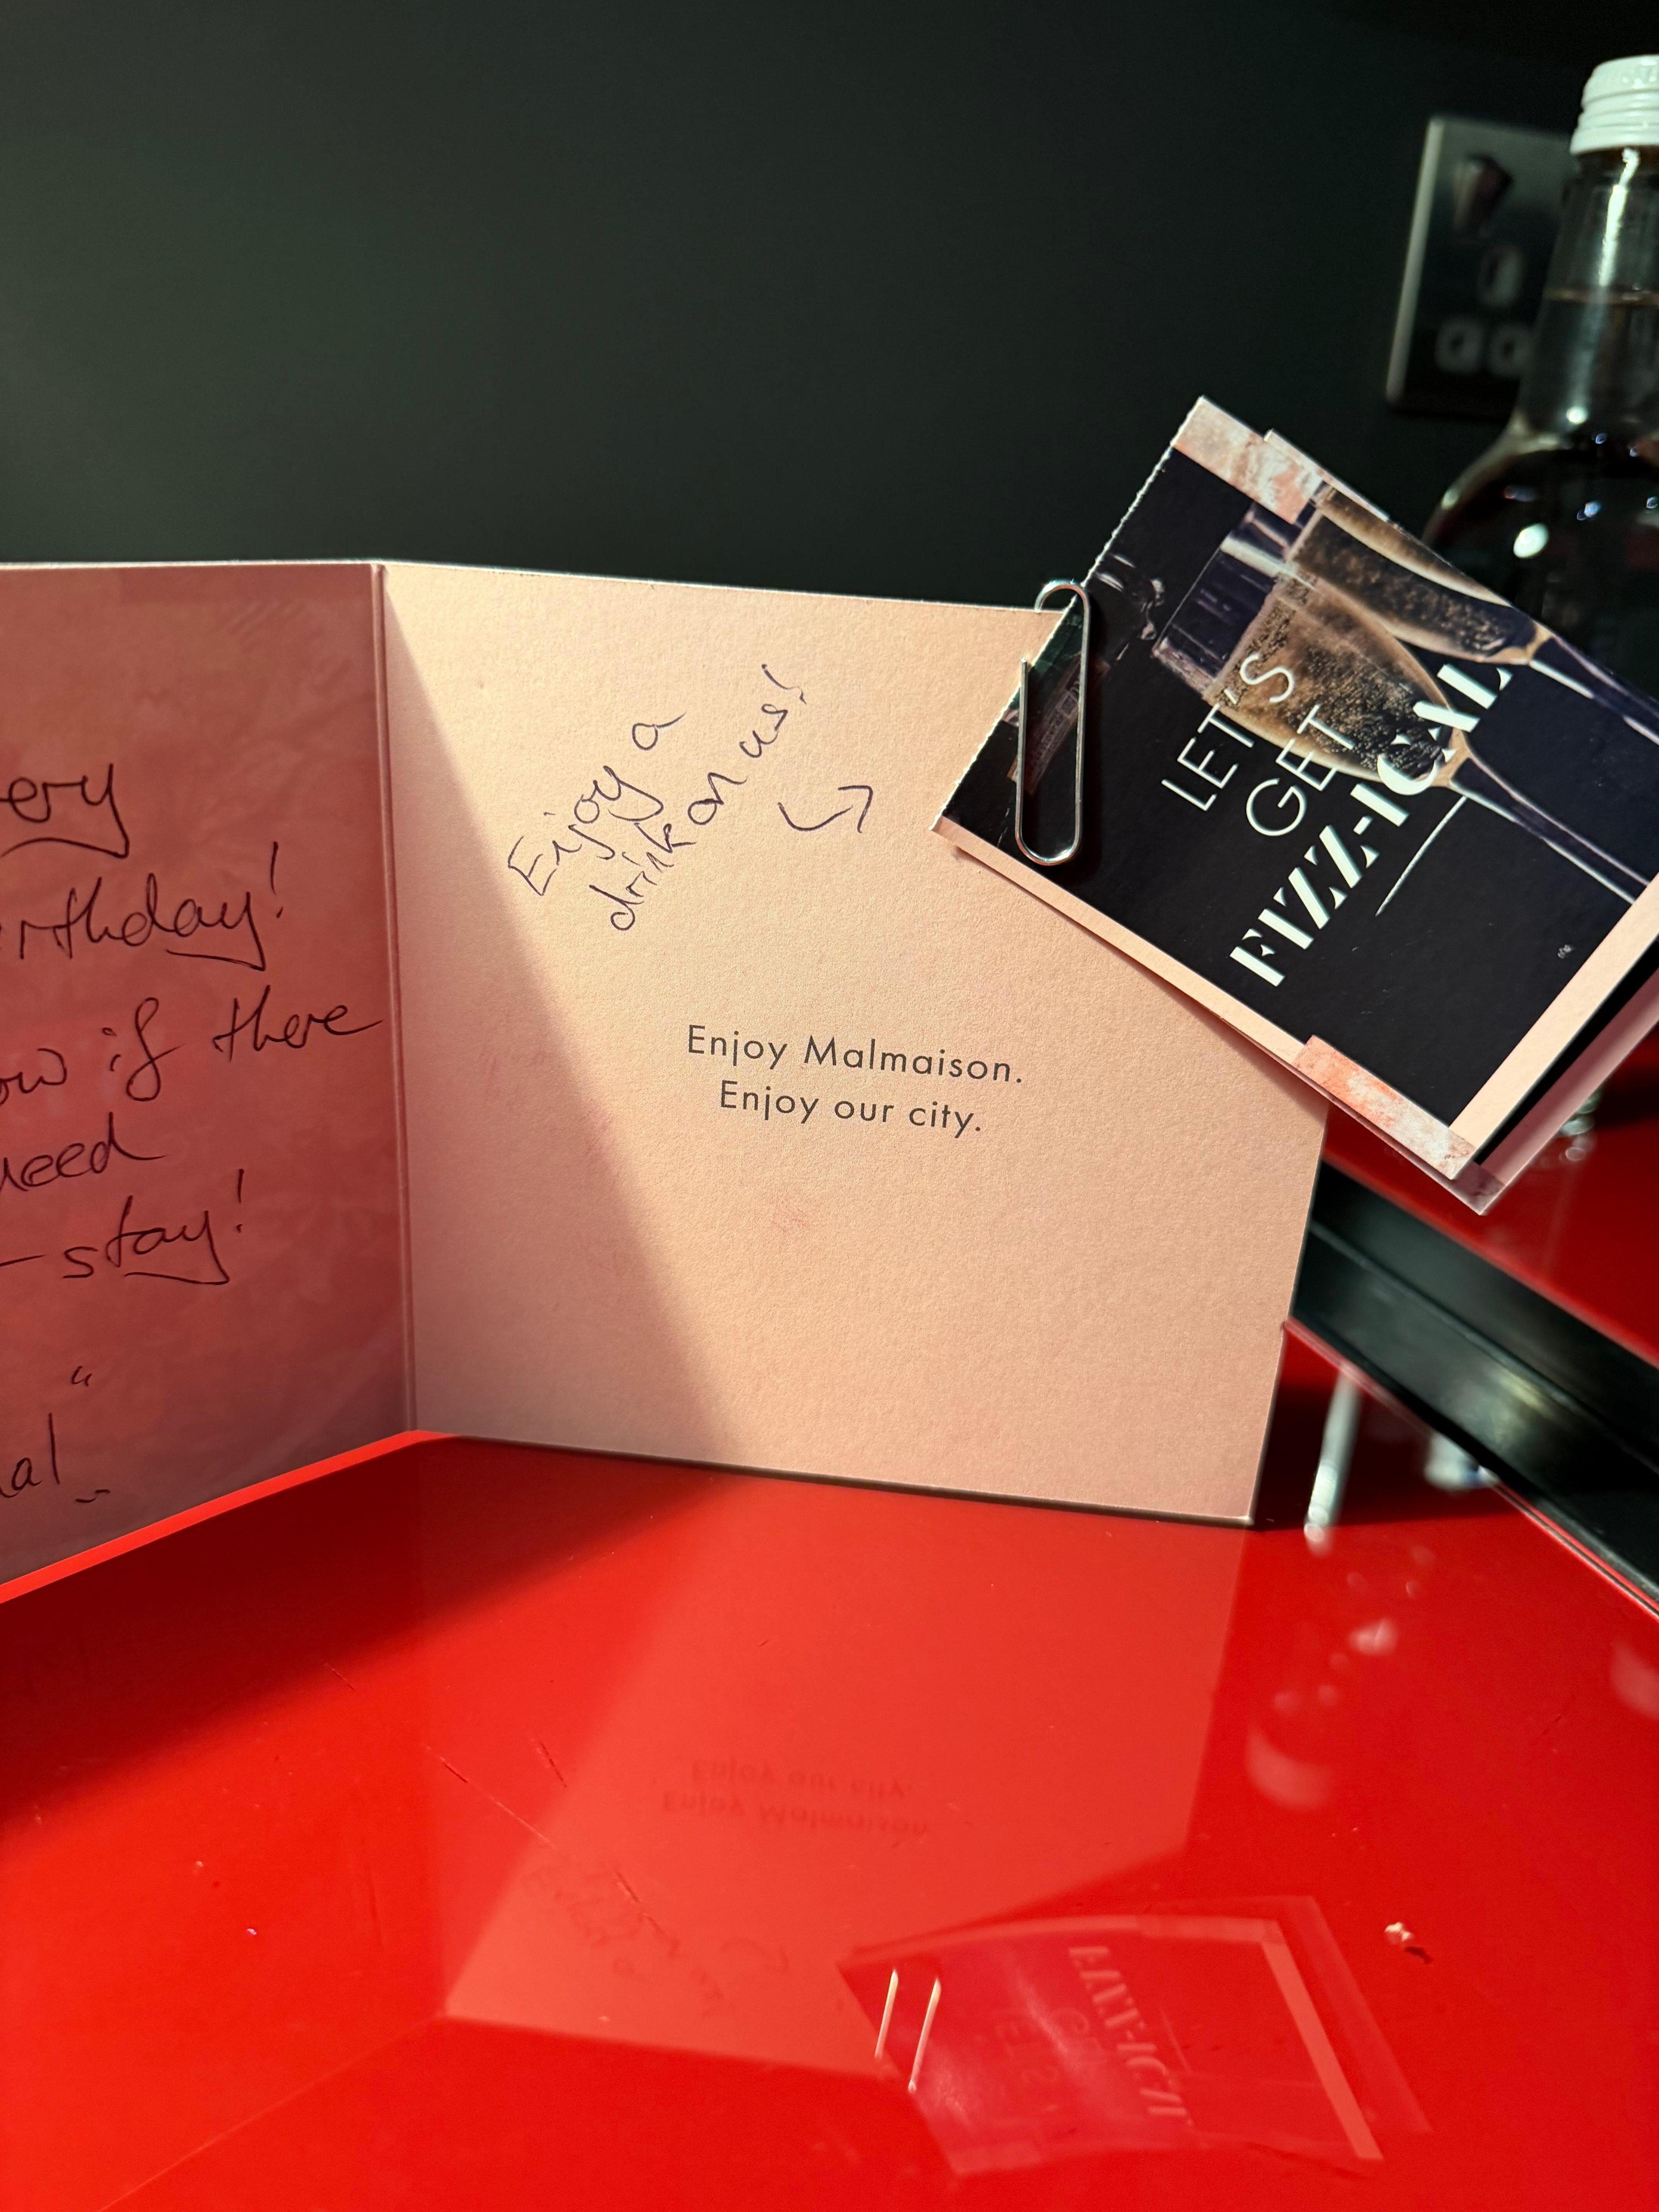 ery
rthday!
ow if there
need
-stay!
al
Enjoy a
drink on us!
Enjoy Malmaison.
Enjoy our city.
LET'S
GET
FIZZ-ICAL